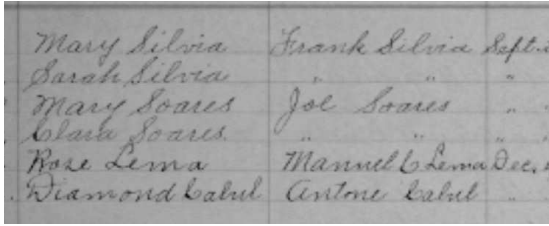 Mary Silvia Frank Silvia Sept.
Sarah Silvia " " "
Mary Soares Joe Soares " "
Clara Soares. " " "
Rose Lema Manuel C Lema Dec.
Diamond Cabul Antone Cabul " "